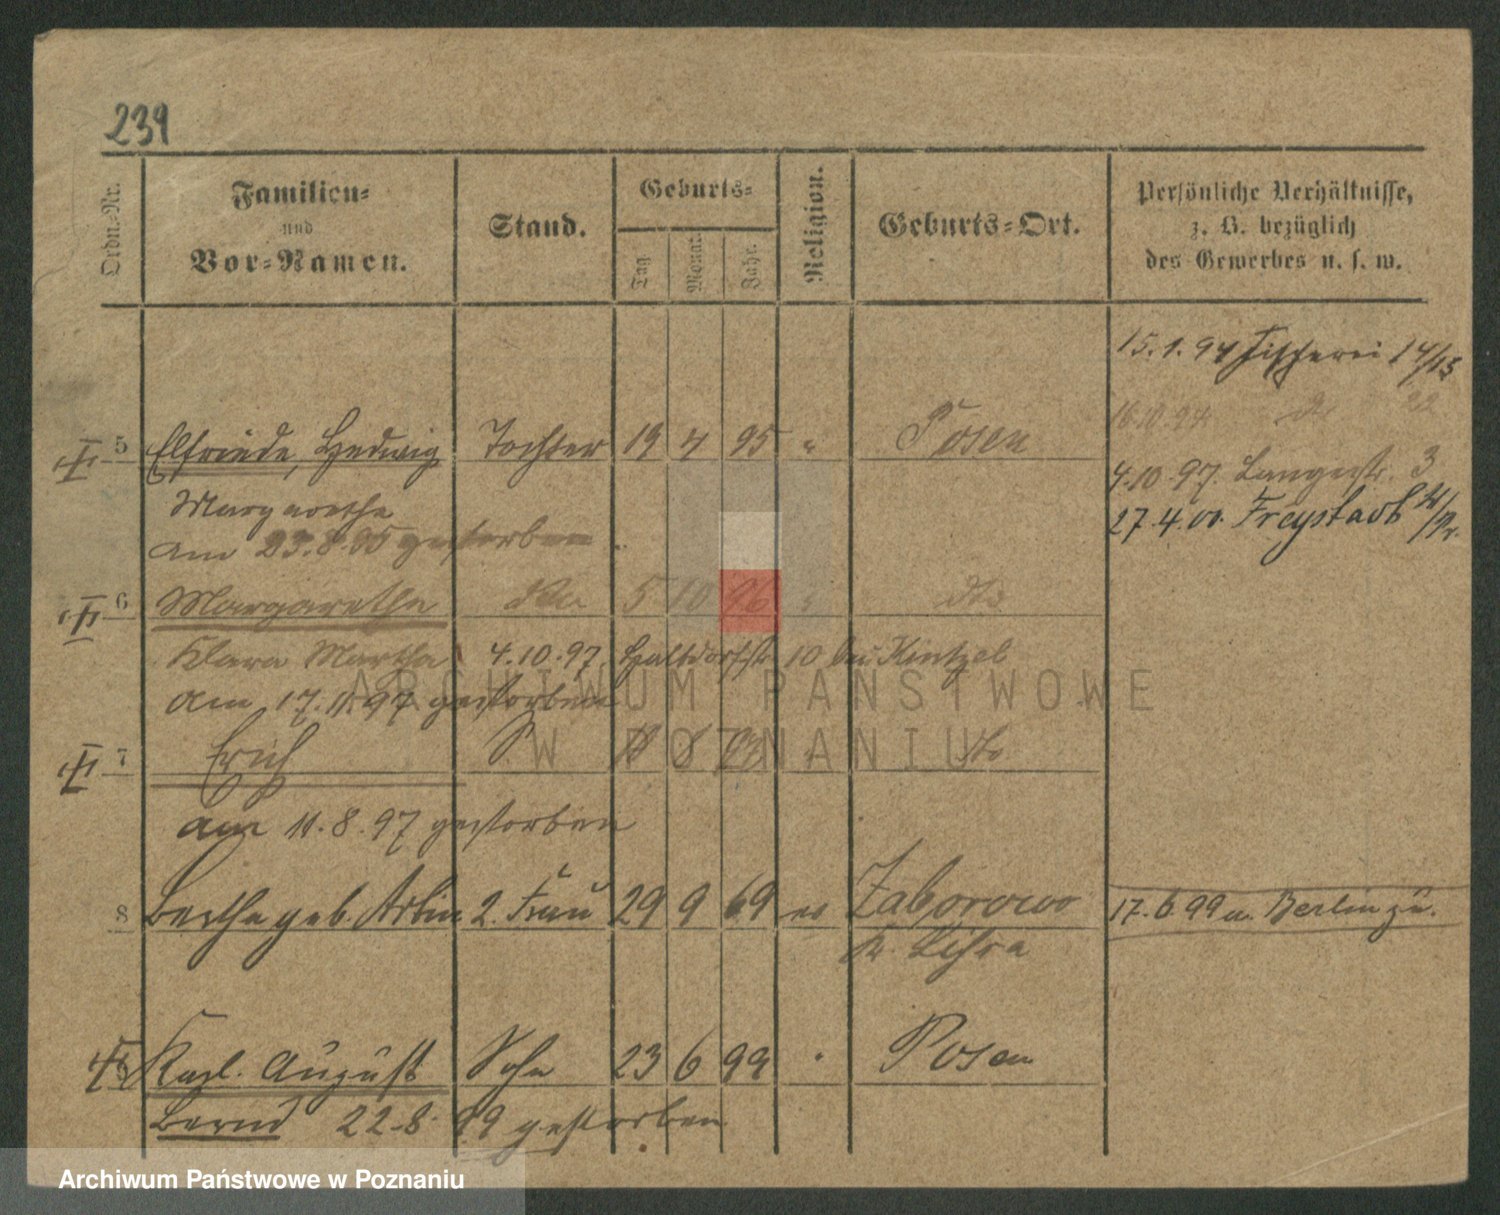 239
Ordn.-Nr.
Familien-
und
Vor-Namen.
Stand.
Geburts-
Tag.
Monat.
Jahr.
Religion.
Geburts-Ort.
Persönliche Verhältnisse,
z. B. bezüglich
des Gewerbes u. s. w.
15.1.94 Fischerei 14/15
16.10.94 do 22
5 Elfriede, Hedwig Tochter 19 4 95 " Posen
4.10.97. Langestr. 3
Margarethe
27.4.00. Freystadt W/Pr.
am 23.8.95 gestorben
6 Margarethe dto 5 10 96 " dto
Klara Martha 4.10.97. Halbdorfstr 10 bei Kintzel
am 17.11.97 gestorben
7 Erich S. dto
am 11.8.97 gestorben
8 Bertha geb. Arbin 2. Frau 29 9 69 ev Zaborowo 17.6.99 a. Berlin zu.
Kr. Lissa
Karl. August Sohn 23 6 99 " Posen
Bernd 22.8.99 gestorben
ARCHIWUM PAŃSTWOWE
W POZNANIU
Archiwum Państwowe w Poznaniu